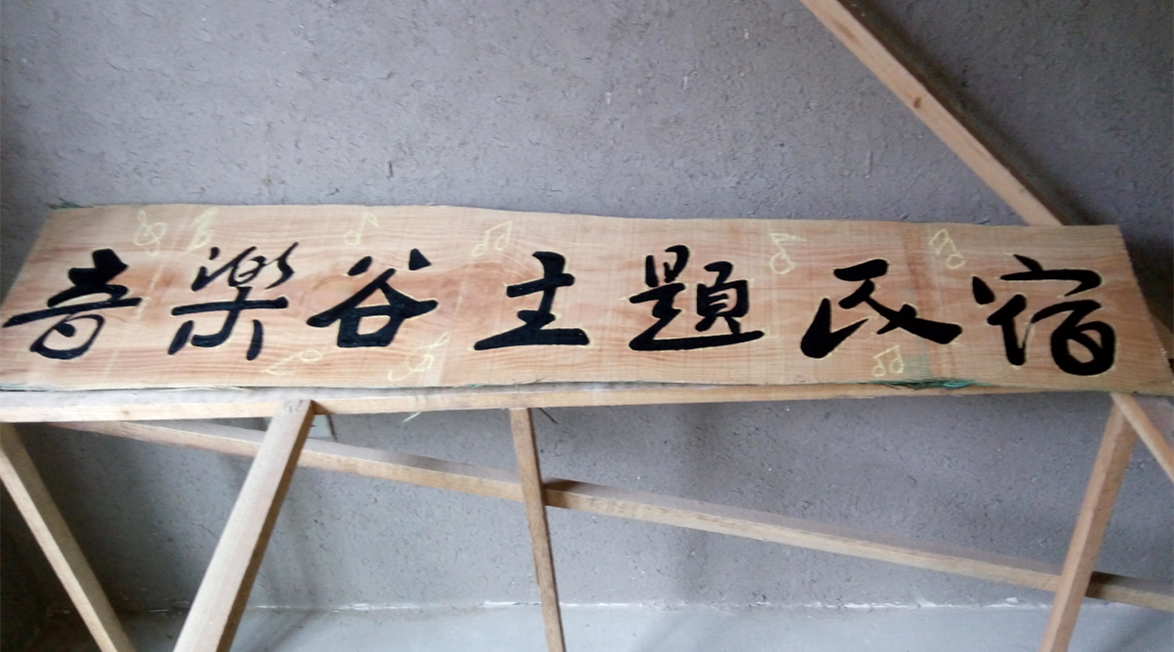 音樂谷主題民宿